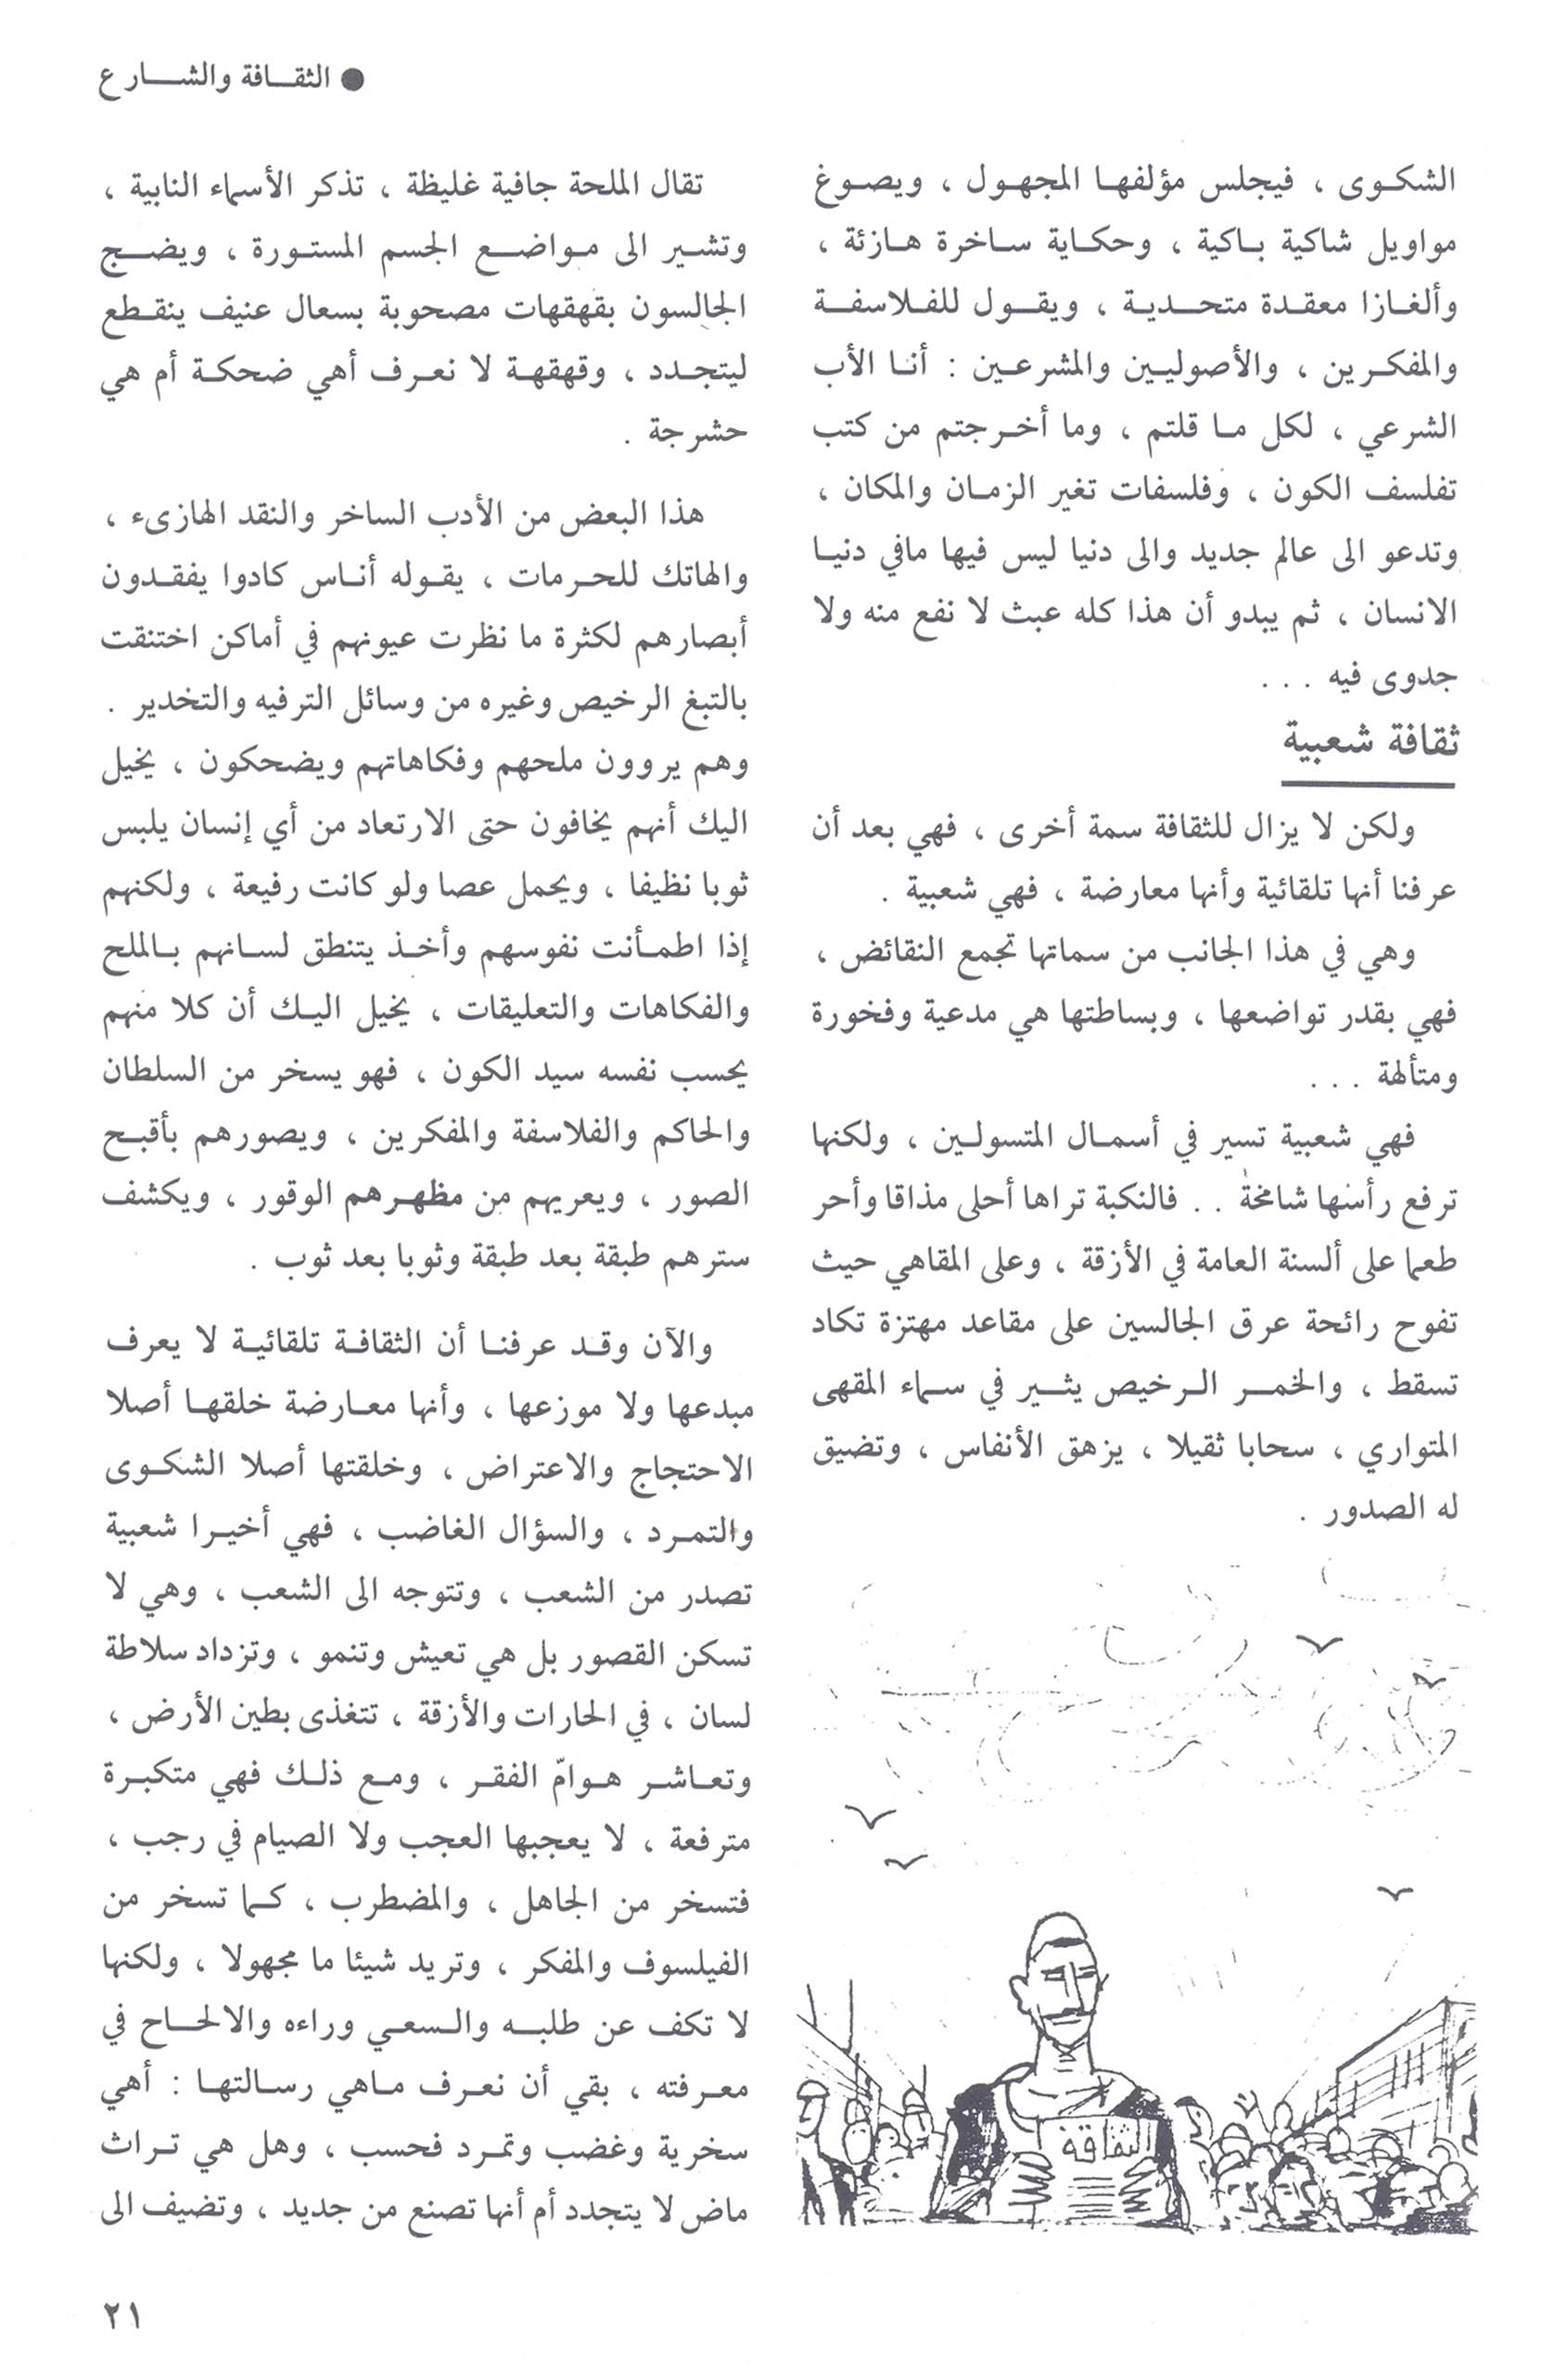 ● الثقافة والشارع
الشكوى ، فيجلس مؤلفها المجهول ، ويصوغ
مواويل شاكية باكية ، وحكاية ساخرة هازئة ،
وألغازا معقدة متحدية ، ويقول للفلاسفة
والمفكرين ، والأصوليين والمشرعين : أنا الأب
الشرعي ، لكل ما قلتم ، وما أخرجتم من كتب
تفلسف الكون ، وفلسفات تغير الزمان والمكان ،
وتدعو الى عالم جديد والى دنيا ليس فيها مافي دنيا
الانسان ، ثم يبدو أن هذا كله عبث لا نفع منه ولا
جدوى فيه . . .
ثقافة شعبية
ولكن لا يزال للثقافة سمة أخرى ، فهي بعد أن
عرفنا أنها تلقائية وأنها معارضة ، فهي شعبية .
وهي في هذا الجانب من سماتها تجمع النقائض ،
فهي بقدر تواضعها ، وبساطتها هي مدعية وفخورة
ومتألهة . . .
فهي شعبية تسير في أسمال المتسولين ، ولكنها
ترفع رأسها شامخة . . فالنكبة تراها أحلى مذاقا وأحر
طعما على ألسنة العامة في الأزقة ، وعلى المقاهي حيث
تفوح رائحة عرق الجالسين على مقاعد مهتزة تكاد
تسقط ، والخمر الرخيص يثير في سماء المقهى
المتواري ، سحابا ثقيلا ، يزهق الأنفاس ، وتضيق
له الصدور .
الثقافة
تقال الملحة جافية غليظة ، تذكر الأسماء النابية ،
وتشير الى مواضع الجسم المستورة ، ويضج
الجالسون بقهقهات مصحوبة بسعال عنيف ينقطع
ليتجدد ، وقهقهة لا نعرف أهي ضحكة أم هي
حشرجة .
هذا البعض من الأدب الساخر والنقد الهازىء ،
والهاتك للحرمات ، يقوله أناس كادوا يفقدون
أبصارهم لكثرة ما نظرت عيونهم في أماكن اختنقت
بالتبغ الرخيص وغيره من وسائل الترفيه والتخدير .
وهم يروون ملحهم وفكاهاتهم ويضحكون ، يخيل
اليك أنهم يخافون حتى الارتعاد من أي إنسان يلبس
ثوبا نظيفا ، ويحمل عصا ولو كانت رفيعة ، ولكنهم
إذا اطمأنت نفوسهم وأخذ يتنطق لسانهم بالملح
والفكاهات والتعليقات ، يخيل اليك أن كلا منهم
يحسب نفسه سيد الكون ، فهو يسخر من السلطان
والحاكم والفلاسفة والمفكرين ، ويصورهم بأقبح
الصور ، ويعريهم من مظهرهم الوقور ، ويكشف
سترهم طبقة بعد طبقة وثوبا بعد ثوب .
والآن وقد عرفنا أن الثقافة تلقائية لا يعرف
مبدعها ولا موزعها ، وأنها معارضة خلقها أصلا
الاحتجاج والاعتراض ، وخلقتها أصلا الشكوى
والتمرد ، والسؤال الغاضب ، فهي أخيرا شعبية
تصدر من الشعب ، وتتوجه الى الشعب ، وهي لا
تسكن القصور بل هي تعيش وتنمو ، وتزداد سلاطة
لسان ، في الحارات والأزقة ، تتغذى بطين الأرض ،
وتعاشر هوامّ الفقر ، ومع ذلك فهي متكبرة
مترفعة ، لا يعجبها العجب ولا الصيام في رجب ،
فتسخر من الجاهل ، والمضطرب ، كما تسخر من
الفيلسوف والمفكر ، وتريد شيئا ما مجهولا ، ولكنها
لا تكف عن طلبه والسعي وراءه والالحاح في
معرفته ، بقي أن نعرف ماهي رسالتها : أهي
سخرية وغضب وتمرد فحسب ، وهل هي تراث
ماض لا يتجدد أم أنها تصنع من جديد ، وتضيف الى
٢١